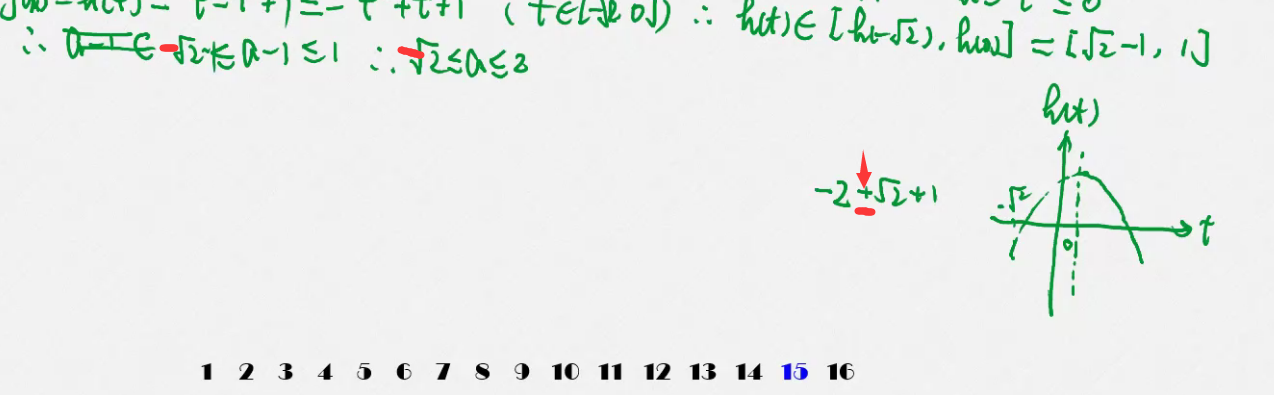 +t+1 (t∈[-√2, 0]) ∴ h(t)∈[h(-√2), h(0)] = [√2-1, 1]
∴ -√2-1≤a-1≤1 ∴ -√2≤a≤2
h(t)
-2+√2+1
-√2
t
0
1 2 3 4 5 6 7 8 9 10 11 12 13 14 15 16